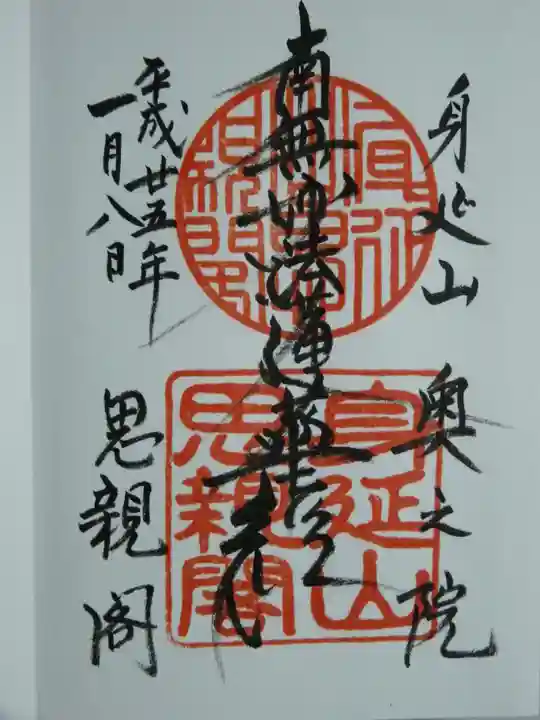 身延山 奥之院
南無妙法蓮華経
平成廿五年
一月八日
思親閣
身延山
思親閣